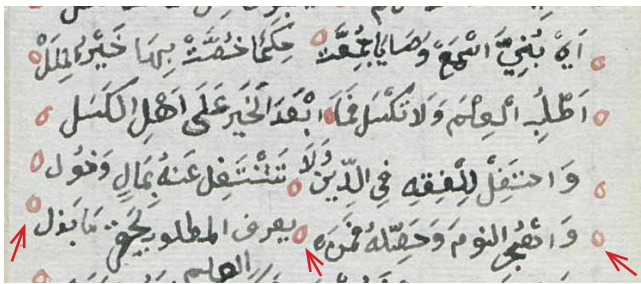 اَيْ بُنَيَّ اسْمَعْ وَصَايَا جُمِعَتْ حِكَمًا خُصَّتْ بِهَا خَيْرُ المِلَلْ
اَطْلُبِ العِلْمَ وَلَا تَكْسَلْ فَمَا اَبْعَدَ الخَيْرَ عَلَى اَهْلِ الكَسَل
وَاحتَفِلْ لِلْفِقهِ فِي الدِّينِ وَلَا تَشْتَغِل عَنهُ بِمَالٍ وَخَوَل
وَاهْجُرِ النومَ وَحَصِّلْهُ فَمَن يعرف المطلوب يحقر مَا بَذل
العلم